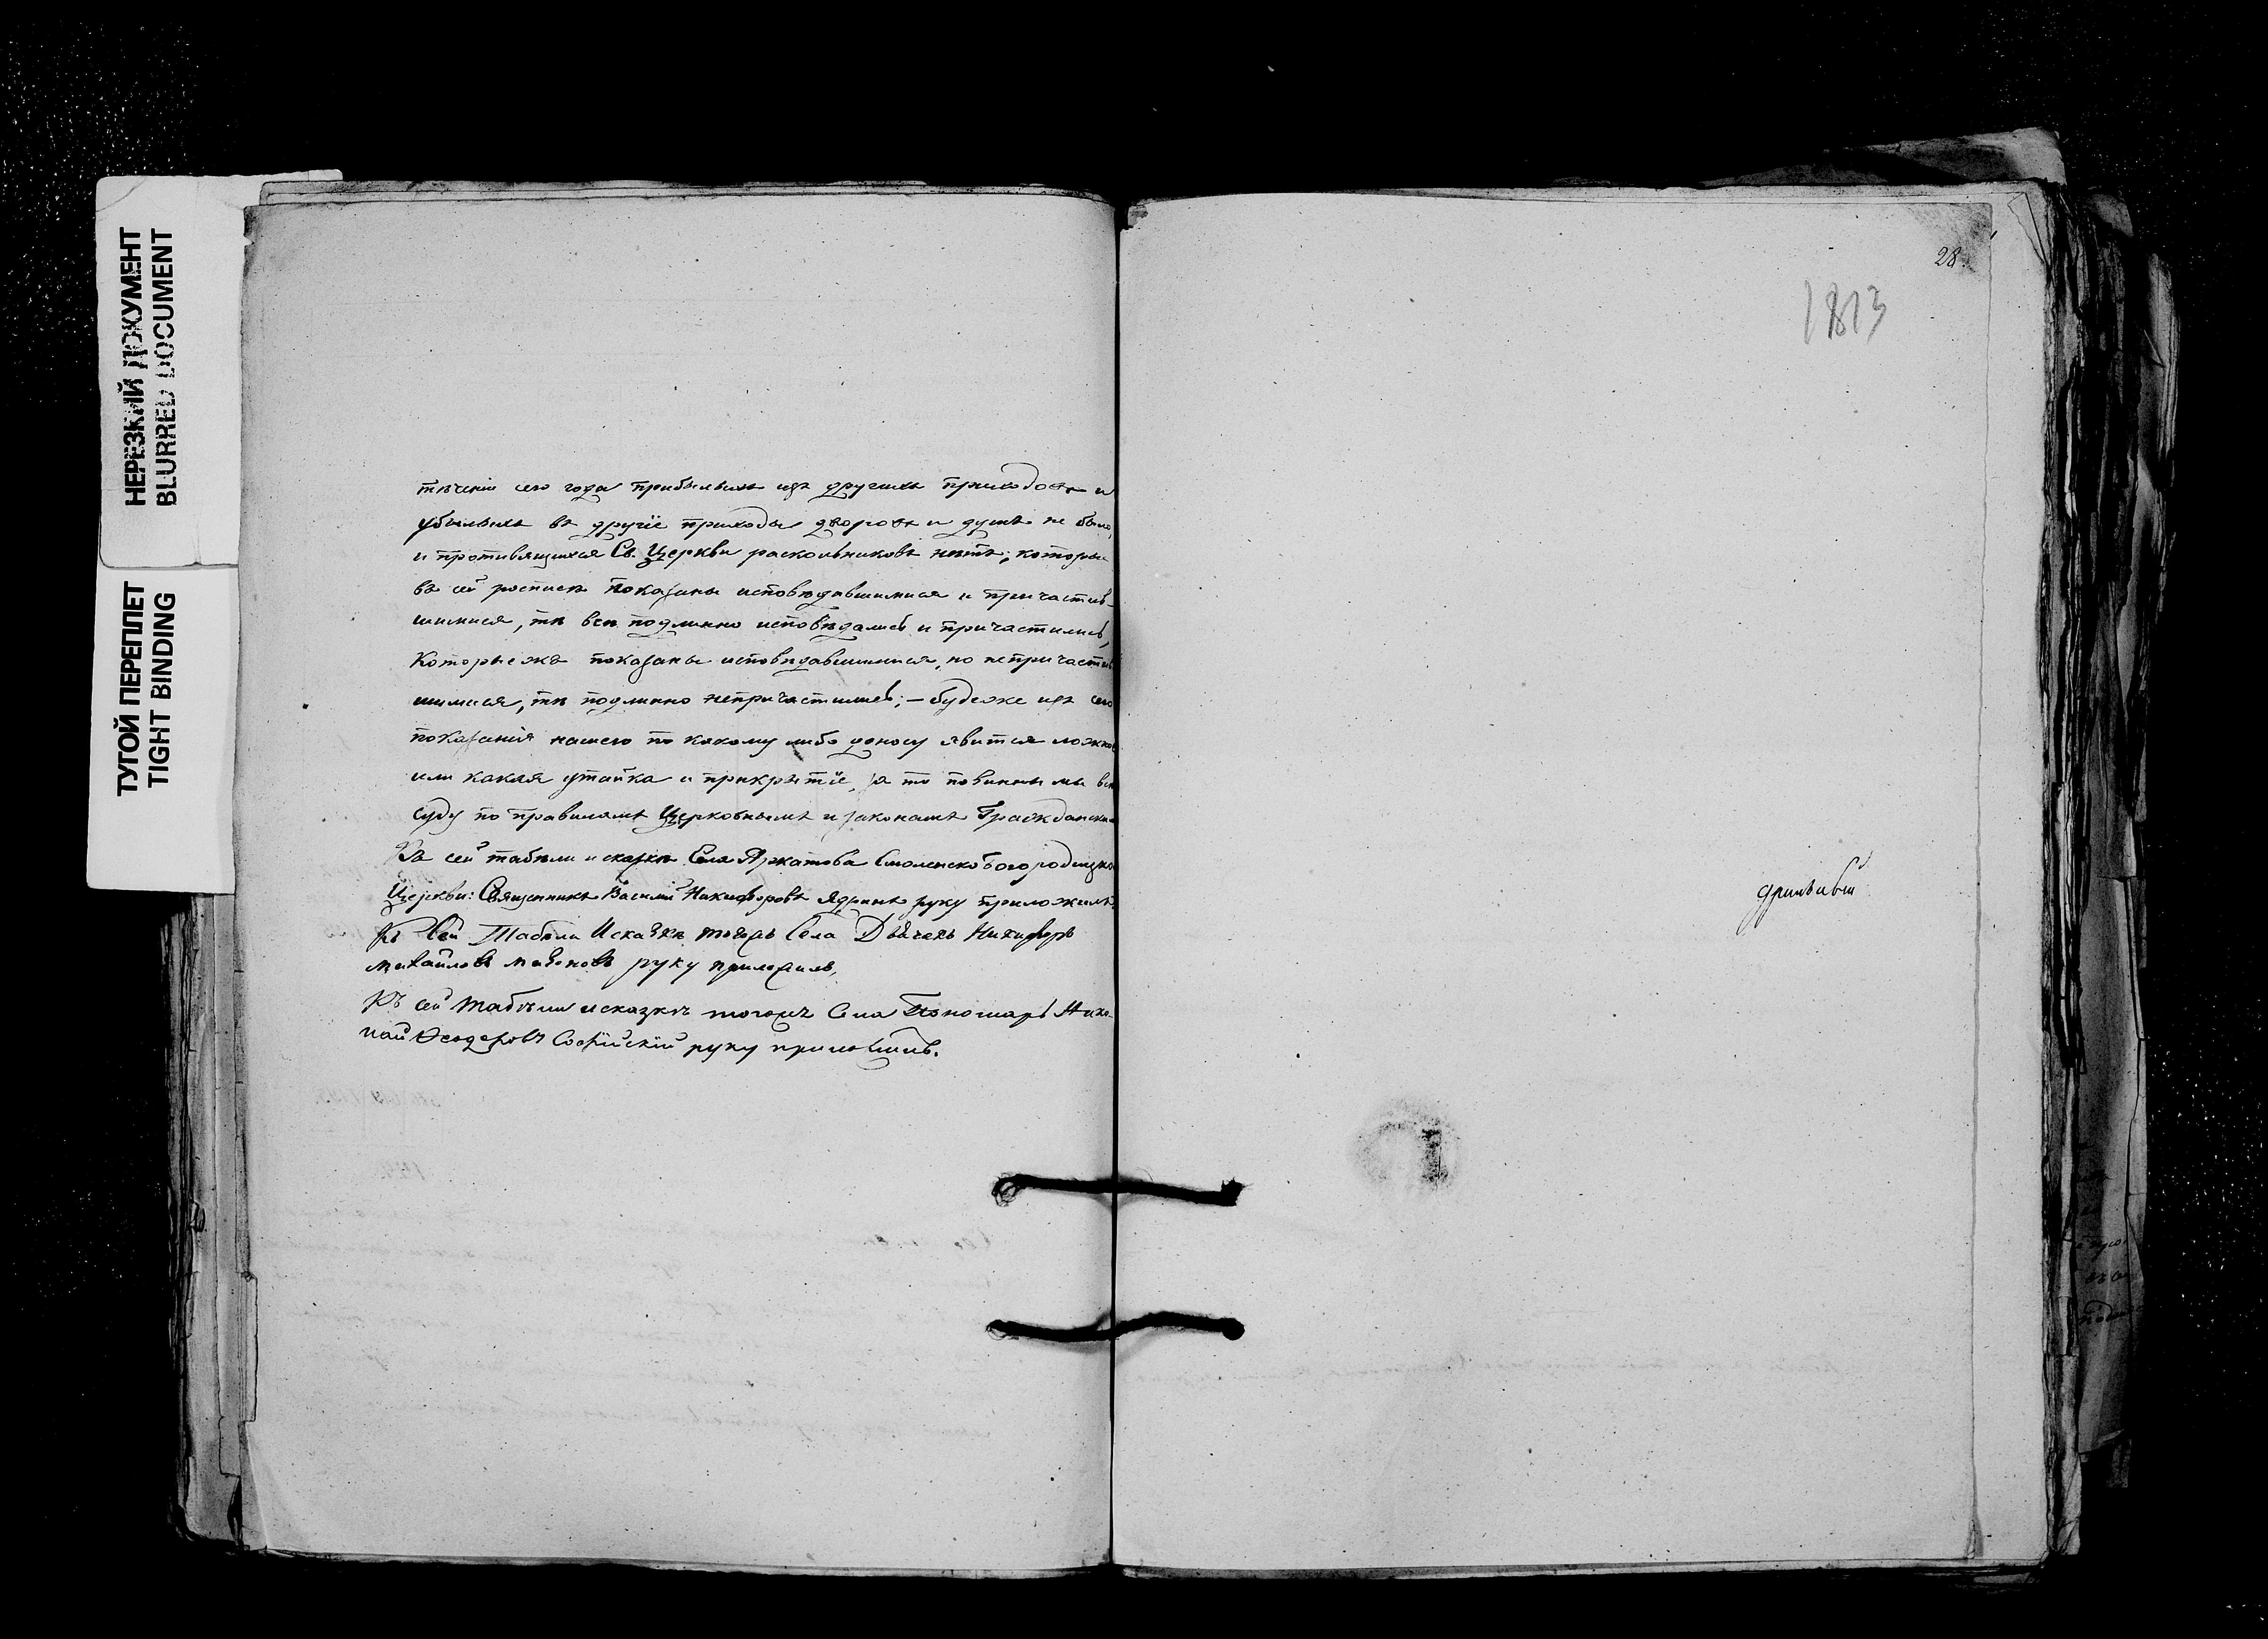 НЕРЕЗКИЙ ДОКУМЕНТ
BLURRED DOCUMENT
ТУГОЙ ПЕРЕПЛЕТ
TIGHT BINDING
теченіи сего года прибылыхъ изъ другихъ приходовъ и
убылыхъ въ другіе приходы дворовъ и душъ не было,
и противящихся Св. Церкви раскольниковъ нѣтъ; которыи
въ сей росписѣ показаны исповѣдавшимися и причастив-
шимися, тѣ всѣ подлинно исповѣдались и причастились,
которыежъ показаны исповѣдавшимися, но непричастив
шимися, тѣ подлинно непричастились; — будеже изъ сего
показанія нашего по какому либо доносу явится ложно
или какая утайка и прикрытіе, за то повинны мы всѣ
суду по правиламъ Церковнымъ и законамъ Граждански
Къ сей табѣли и сказкѣ Села Аркатова Смоленскобогородицко
Церкви: Священникъ Василій Никифоровъ Ядринъ руку приложилъ.
Къ Сей Табѣли Исказкѣ тогожъ Села Дьячекъ Никифоръ
Михайловъ руку приложилъ,
Къ сей табѣли исказкѣ тогожъ Села Пономарь Нико-
лай Ѳеодоровъ Софійскій руку приложилъ.
28.
1813